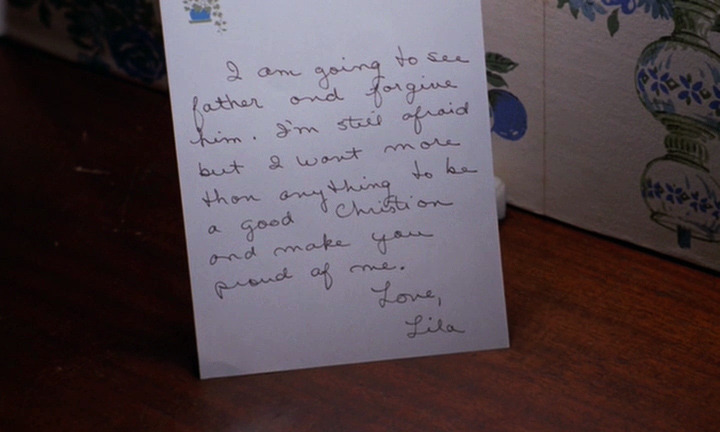 I am going to see
father and forgive
him. I'm still afraid
but I want more
than anything to be
a good Christian
and make you
proud of me.
Love,
Lila